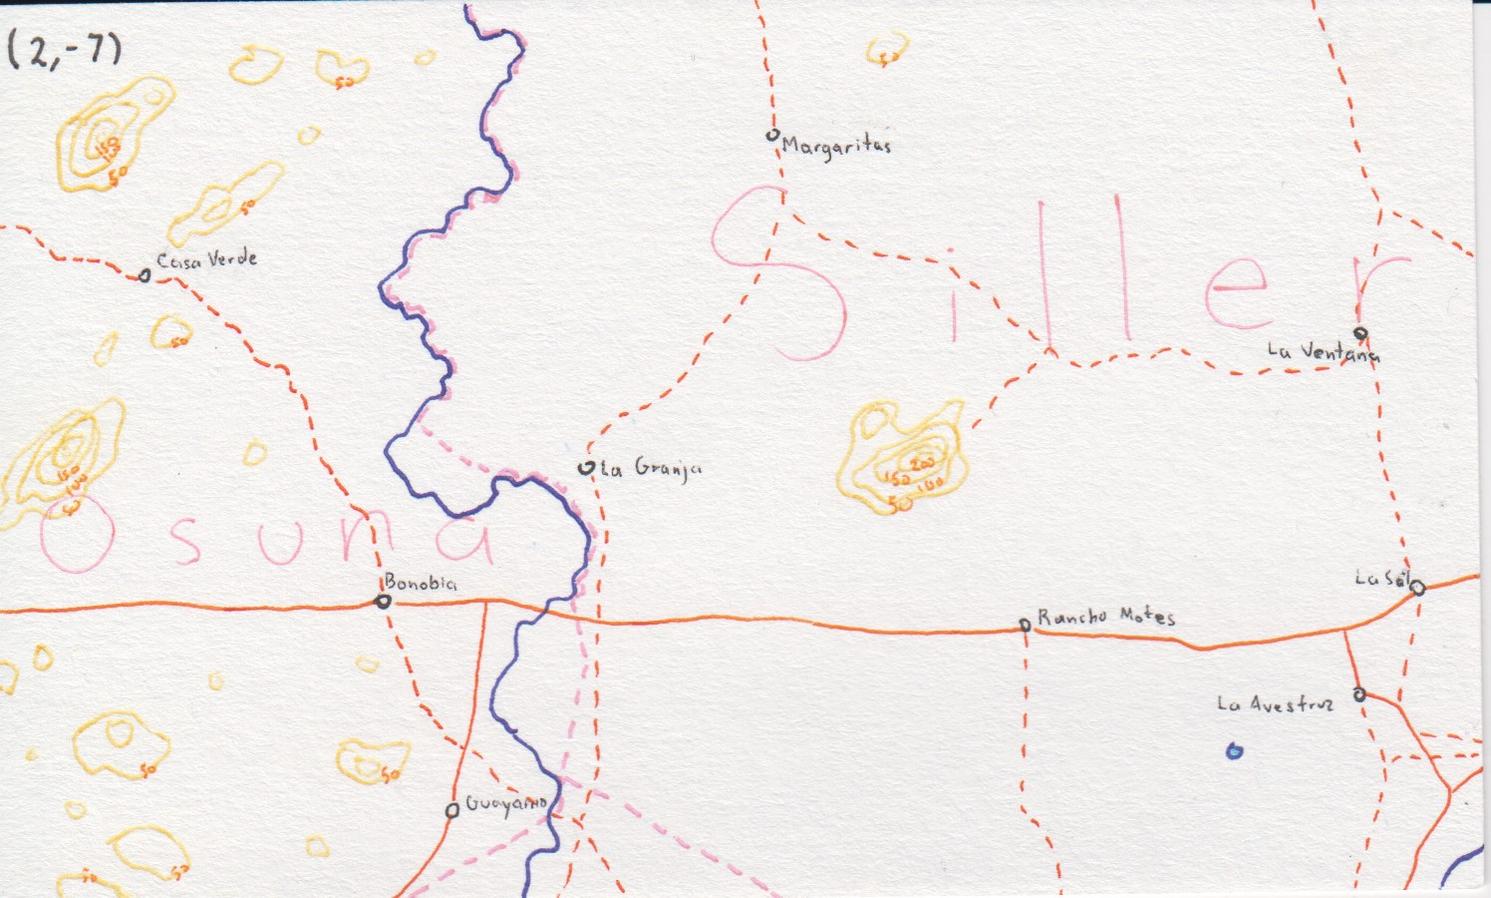 (2,-7)
50
50
150
100
50
Margaritas
50
Casa Verde
Siller
50
La Ventana
150
100
50
La Granja
200
150
100
50
Osuna
Bonobia
La Sal
Rancho Motes
La Avestruz
50
50
Guayamo
50
50